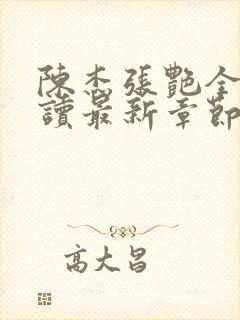 陳杰張艷全
讀最新章節
高大昌